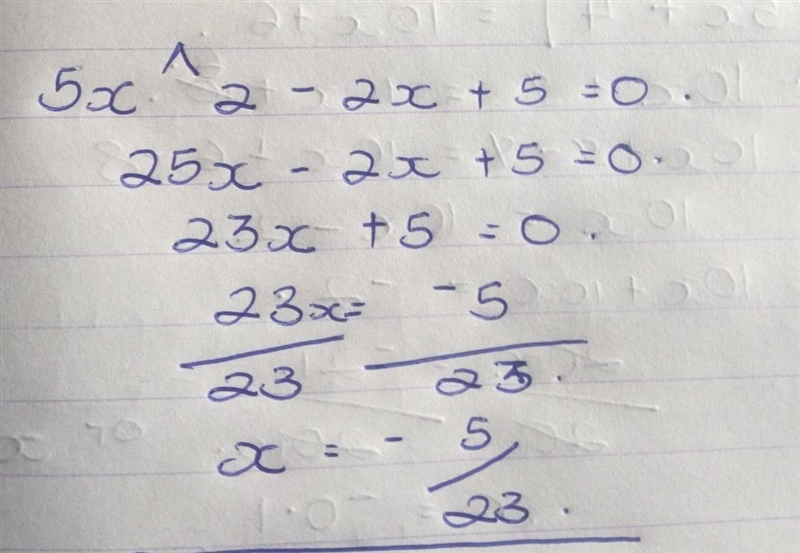 5x^2 - 2x + 5 = 0.
25x - 2x + 5 = 0.
23x + 5 = 0.
23x = -5
23 23.
x = - 5/23.